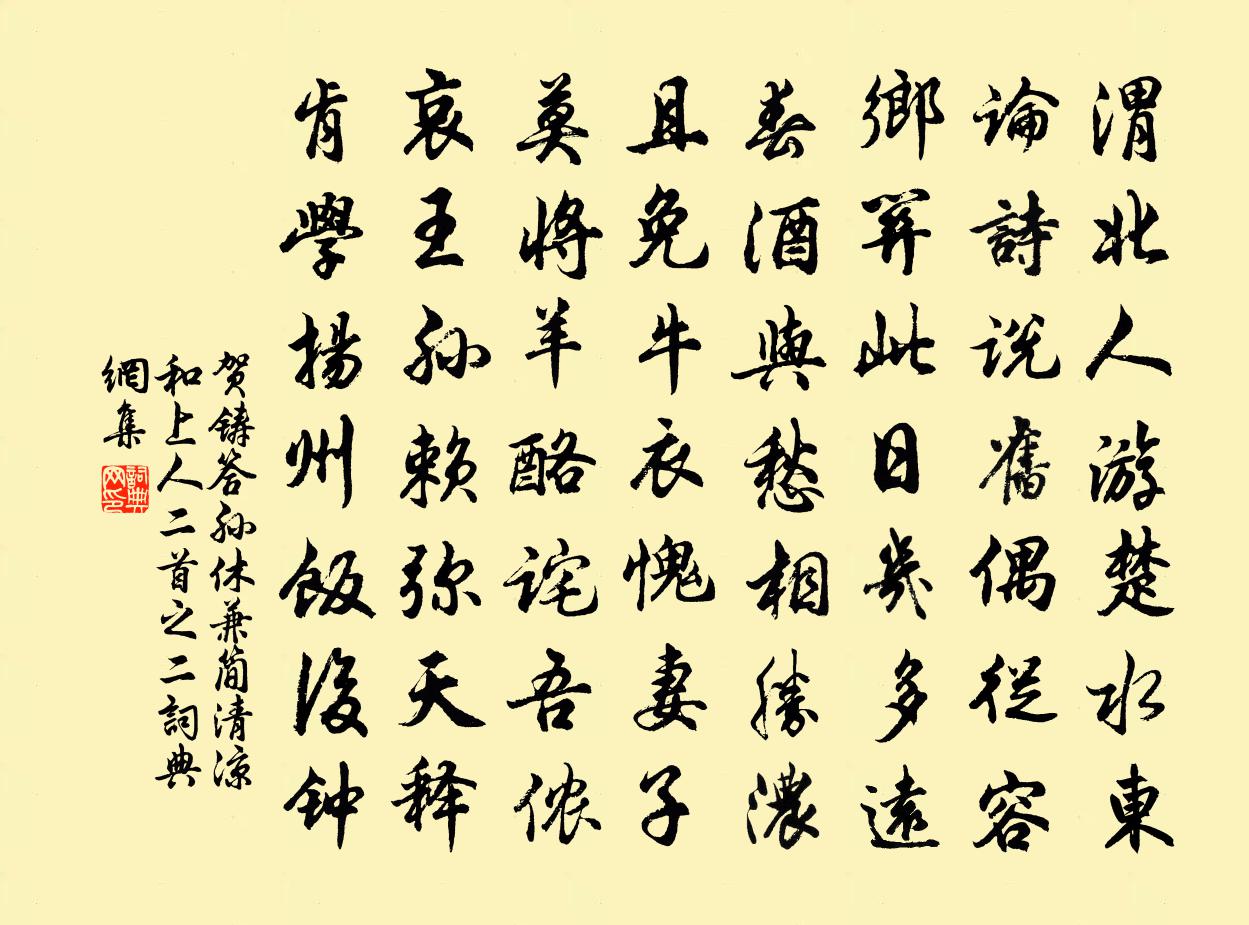 渭北人游楚水東
論詩説舊偶從容
鄉關此日幾多遠
春酒與愁相勝濃
且免牛衣愧妻子
莫將羊酪詫吾侬
哀王孫賴弥天释
肯學揚州飯後钟
贺鑄答孫休兼简清涼
和上人二首之二詞典
網集
詞典网印